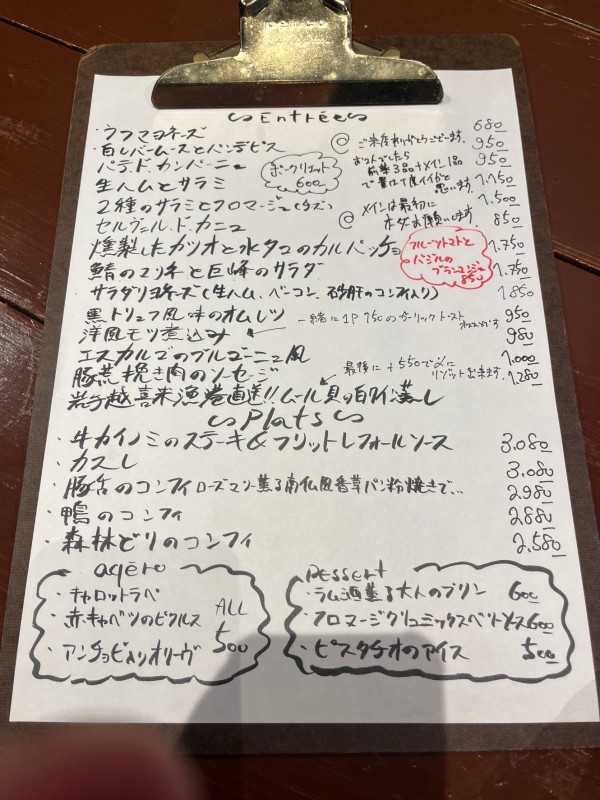 Entrée
・ウフマヨネーズ 680
・白レバームースとパンデピス 950
パテ.ド.カンパーニュ 950
生ハムとサラミ 1,150
2種のサラミとフロマージュ(チーズ) 1,500
セルヴェル.ド.カニュ 850
燻製したカツオと水タコのカルパッチョ 1,750
鯖のマリネと巨峰のサラダ 1,750
サラダリヨネーズ(生ハム、ベーコン、砂肝のコンフィ入り) 1850
黒トリュフ風味のオムレツ 950
洋風モツ煮込み 980
エスカルゴのブルゴーニュ風 1,000
豚荒挽き肉のソーセージ 1,280
岩手越喜来漁港直送!!ムール貝の白ワイン蒸し
ポークリエット
600
@ ご来店ありがとうございます。
@ メインは最初に
お願いします。
フルーツトマトと
バジルの
ブランマンジェ
850
一緒に1P 150のガーリックトースト
最後に +550で〆に
リゾット出来ます。
Plats
・牛カイノミのステーキ&フリットレフォールソース 3,080
・カスレ 3,080
・豚舌のコンフィローズマリー薫る南仏風香草パン粉焼きで... 2980
・鴨のコンフィ 2880
・森林どりのコンフィ 2,580
apéro
・キャロットラペ
・赤キャベツのピクルス
・アンチョビ入りオリーヴ
ALL
500
Dessert
・ラム酒薫る大人のプリン 600
・フロマージュクリュミックスベリーソース 600
・ピスタチオのアイス 500